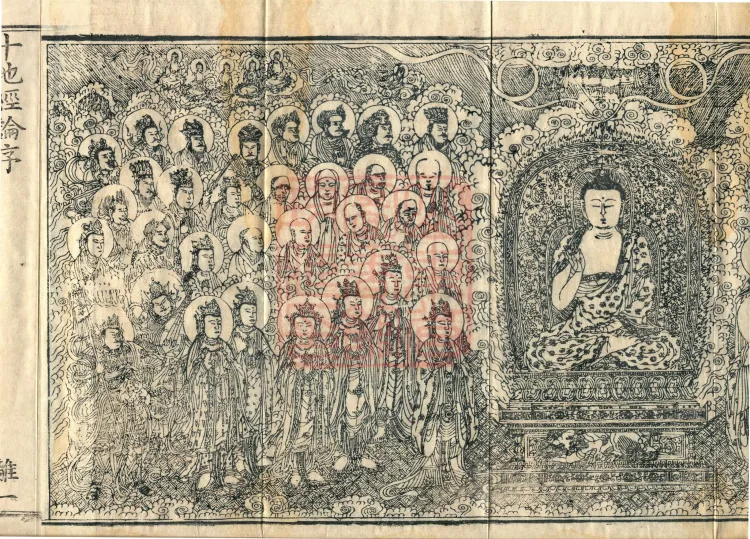 十地經論序
離一